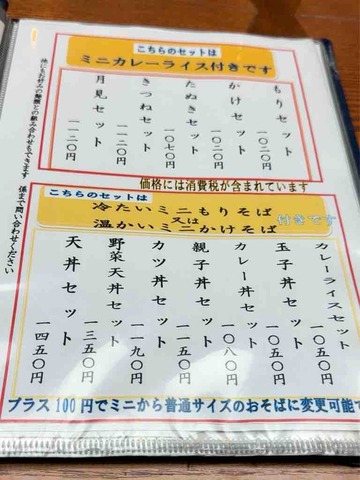 こちらのセットは
ミニカレーライス付きです
もりセット
一〇二〇円
かけセット
一〇二〇円
たぬきセット
一〇七〇円
きつねセット
一一二〇円
月見セット
一一二〇円
他にもお好みの麺類との組み合わせもできます 係まで問い合わせください
価格には消費税が含まれています
こちらのセットは
冷たいミニもりそば
又は
温かいミニかけそば
付きです
カレーライスセット
一〇五〇円
玉子丼セット
一〇五〇円
カレー丼セット
一〇八〇円
親子丼セット
一一五〇円
カツ丼セット
一一九〇円
野菜天丼セット
一三五〇円
天丼セット
一四五〇円
プラス100円でミニから普通サイズのおそばに変更可能で